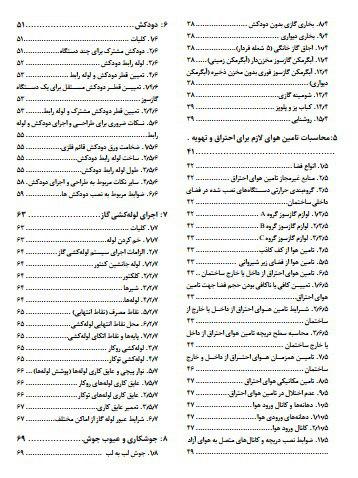 ۸/۴. بخاری گازی بدون دودکش ۳۸
۹/۴. بخاری دیواری ۳۸
۱۰/۴. اجاق گاز خانگی (۵ شعله فردار) ۳۸
۱۱/۴. آبگرمکن گازسوز مخزن‌دار (آبگرمکن زمینی) ۳۸
۱۲/۴. آبگرمکن گازسوز فوری بدون مخزن ذخیره (آبگرمکن
دیواری) ۳۸
۱۳/۴. شومینه گازی ۳۸
۱۴/۴. کباب پز و پلوپز ۳۹
۱۵/۴. روشنایی ۳۹
۵: محاسبات تامین هوای لازم برای احتراق و تهویه .
۴۱
۱/۵. انواع فضا ۴۲
۲/۵. منابع غیرمجاز تامین هوای احتراق ۴۲
۳/۵. گروه‌بندی حرارتی دستگاه‌های نصب شده در فضای
داخلی ساختمان ۴۲
۱/۳/۵. لوازم گازسوز گروه A ۴۲
۲/۳/۵. لوازم گازسوز گروه B ۴۲
۳/۳/۵. لوازم گازسوز گروه C ۴۳
۴/۵. تامین هوا از کف کاذب ۴۳
۵/۵. تامین هوا از فضای زیر شیروانی ۴۳
۶/۵. تامین هوای احتراق از داخل یا خارج ساختمان ۴۳
۱/۶/۵. تعیین کافی یا ناکافی بودن حجم فضا جهت تامین
هوای احتراق ۴۳
۲/۶/۵. شرایط تامین هوای احتراق از داخل یا خارج از
ساختمان ۴۳
۳/۶/۵. محاسبه سطح دریچه تامین هوای احتراق از داخل
یا خارج ساختمان ۴۴
۷/۵. تامین همزمان هوای احتراق از داخل و خارج
ساختمان ۴۶
۸/۵. تامین مکانیکی هوای احتراق ۴۷
۹/۵. عدم اختلال در تامین هوای احتراق ۴۷
۱۰/۵. دهانه‌ها و کانال ورود هوا ۴۷
۱/۱۰/۵. دهانه‌های ورودی هوا ۴۷
۲/۱۰/۵. کانال ورود هوا ۴۸
۱۱/۵. ضوابط نصب دریچه و کانال‌های متصل به هوای آزاد
۴۹
۶: دودکش ۵۱
۱/۶. کلیات ۵۱
۲/۶. دودکش مشترک برای چند دستگاه ۵۱
۳/۶. لوله رابط دودکش ۵۲
۴/۶. تعیین قطر دودکش و لوله رابط ۵۳
۱/۴/۶. تعیین قطر دودکش مستقل برای یک دستگاه
گازسوز ۵۳
۲/۴/۶. تعیین قطر دودکش مشترک و لوله رابط ۵۳
۵/۶. نکات ضروری برای طراحی و اجرای دودکش و لوله
رابط ۵۵
۱/۵/۶. ضخامت ورق دودکش قائم فلزی ۵۵
۲/۵/۶. ساخت لوله رابط دودکش ۵۵
۳/۵/۶. طول لوله رابط دودکش ۵۵
۴/۵/۶. سایر نکات مربوط به طراحی و اجرای دودکش ۵۸
۶/۶. ضوابط مربوط به نصب دودکش ها ۵۹
۷: اجرای لوله‌کشی گاز ۶۳
۱/۷. کلیات ۶۳
۱/۱/۷. خم کردن لوله ۶۳
۲/۷. الزامات اجرای سیستم لوله‌کشی گاز ۶۴
۱/۲/۷. لوله جانشین کنتور ۶۴
۲/۲/۷. کلکتور ۶۴
۳/۲/۷. شیرها ۶۴
۴/۲/۷. لوله‌ها ۶۴
۵/۲/۷. نقاط مصرف (نقاط انتهایی) ۶۵
۶/۲/۷. محل نقاط انتهایی لوله‌کشی ۶۵
۷/۲/۷. پایه‌ها و نقاط اتکای لوله‌کشی ۶۵
۳/۷. لوله‌کشی روکار ۶۵
۴/۷. لوله‌کشی توکار ۶۵
۵/۷. نوار پیچی و عایق کاری لوله‌ها (پوشش لوله‌ها) ۶۶
۱/۵/۷. عایق کاری لوله‌های روکار ۶۶
۲/۵/۷. عایق کاری لوله‌های توکار ۶۶
۳/۵/۷. تعمیر عایق کاری ۶۷
۶/۷. شرایط عبور لوله گاز از اماکن مختلف ۶۷
۸: جوشکاری و عیوب جوش ۶۹
۱/۸. جوش لب به لب ۶۹